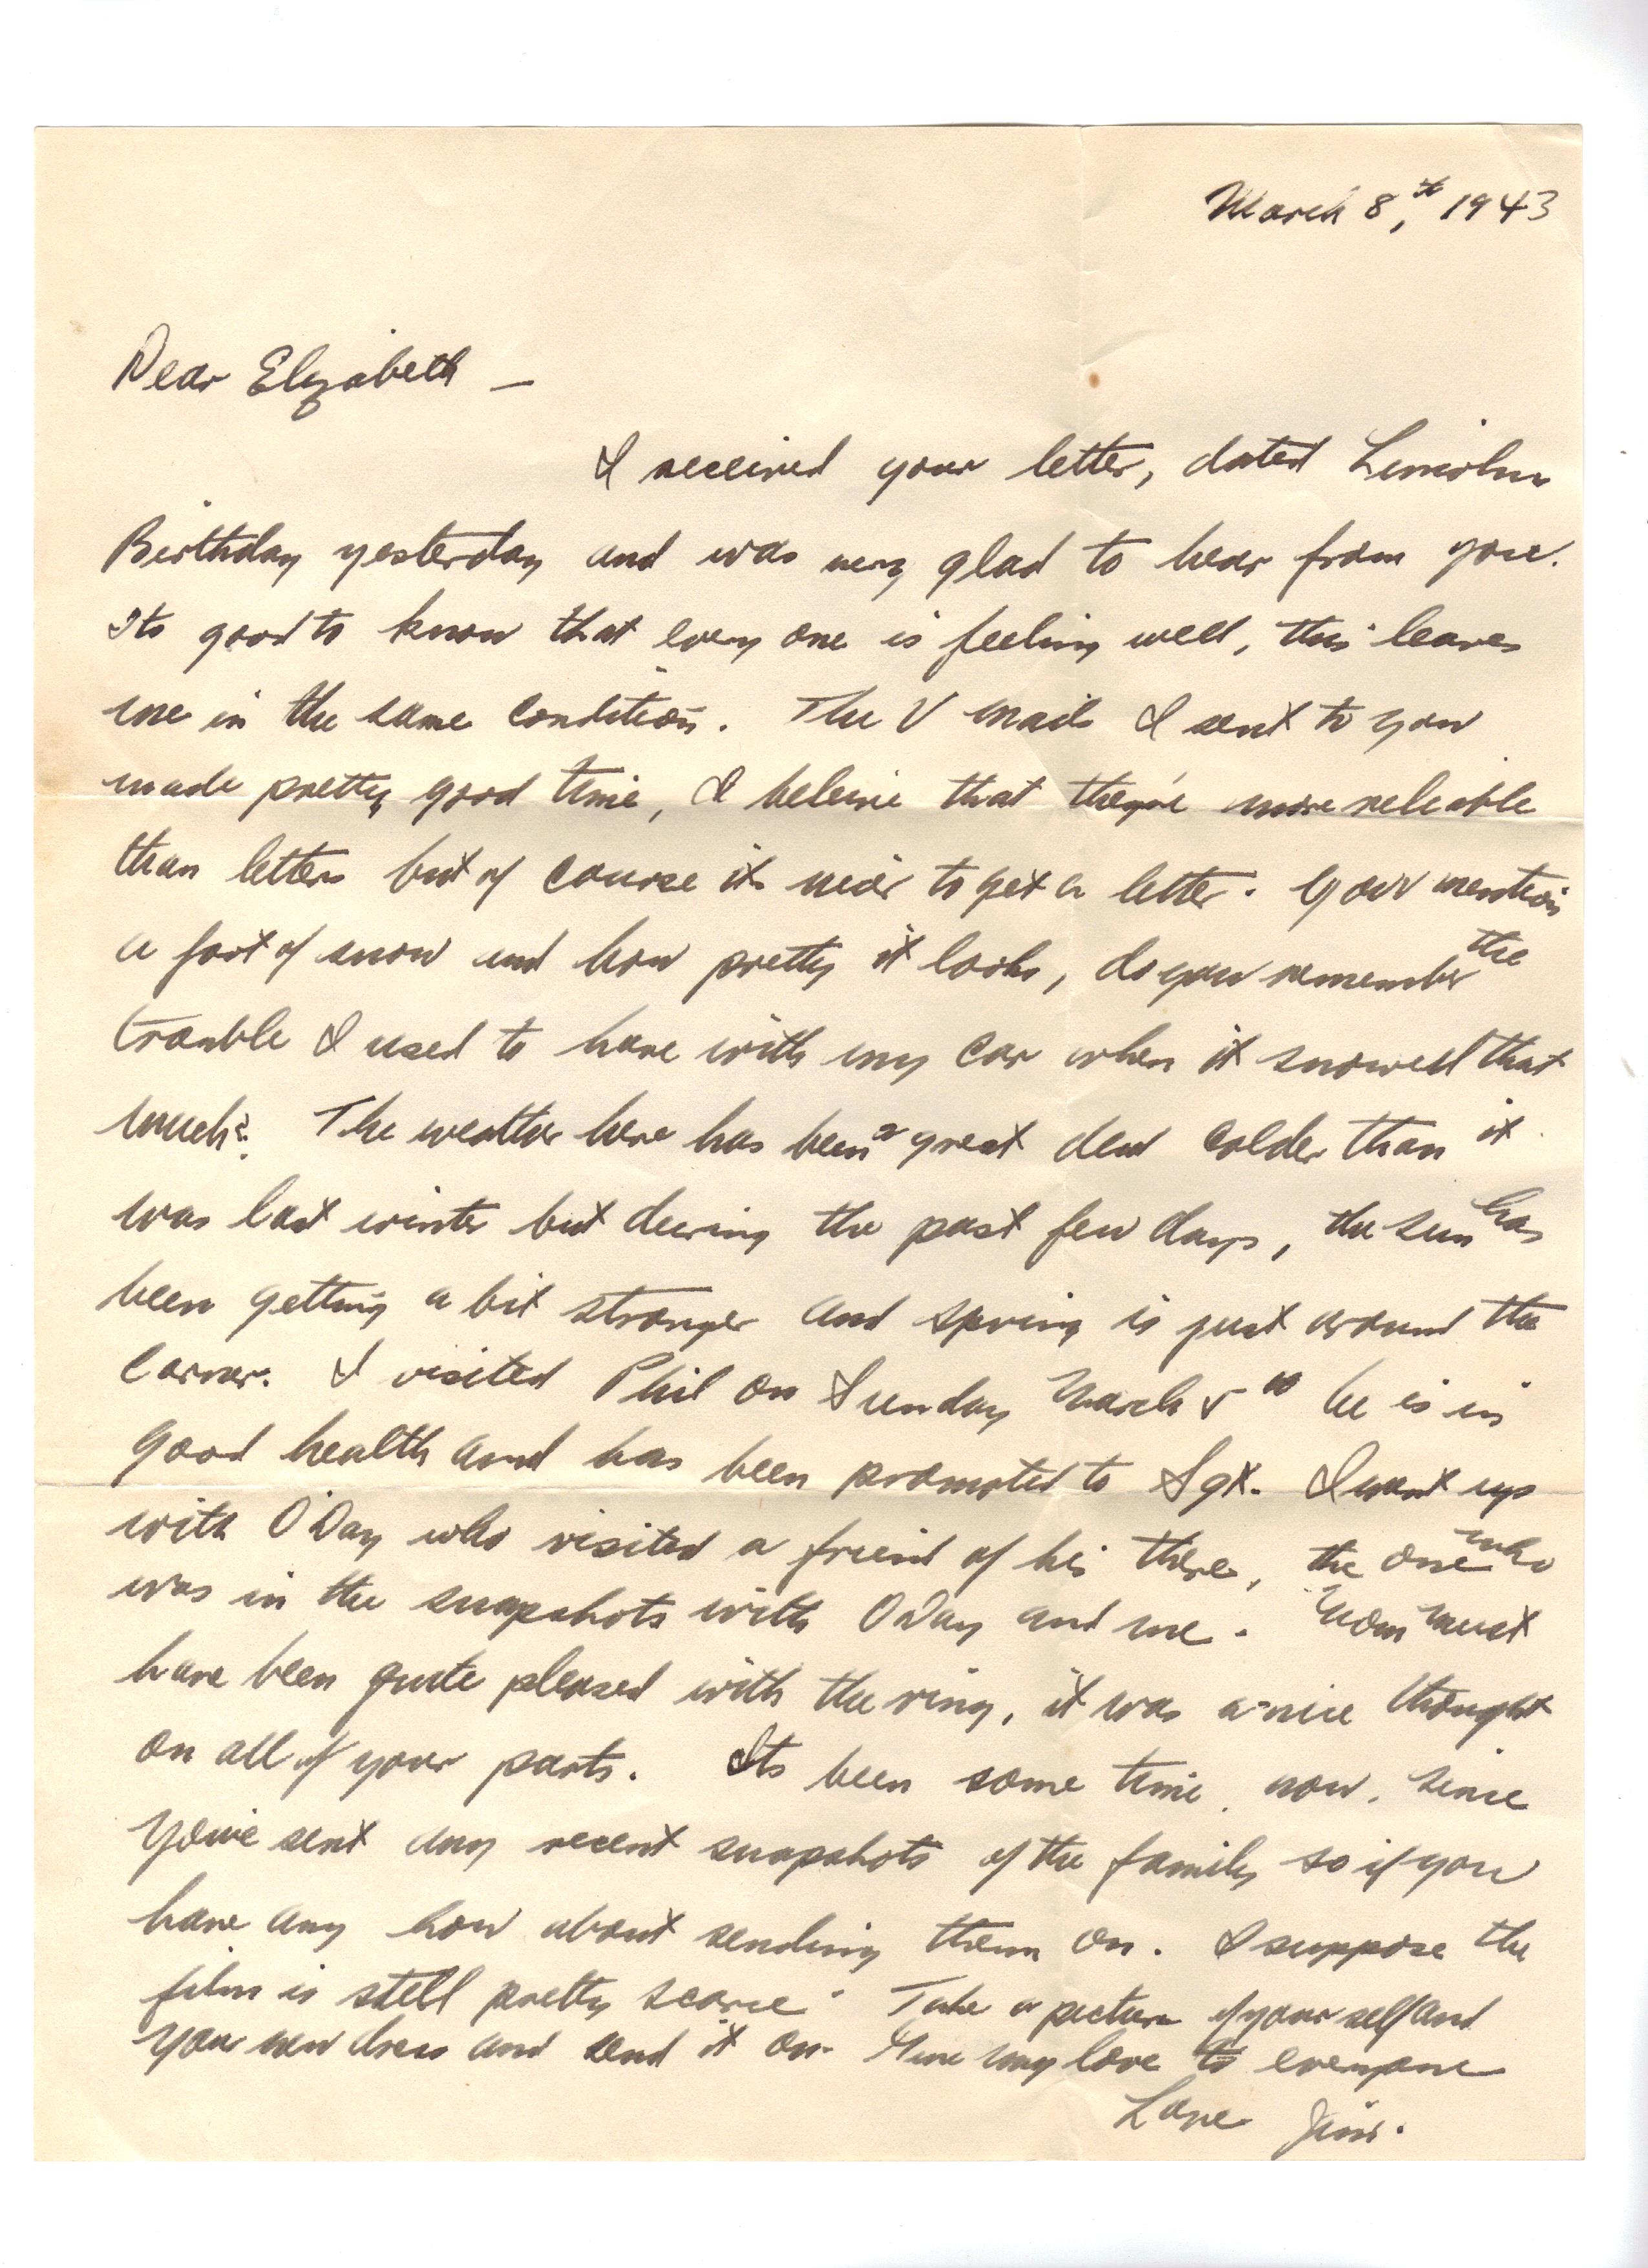 March 8,th 1943
Dear Elizabeth —
I received your letter, dated Lincolns
Birthday yesterday and was very glad to hear from you.
Its good to know that every one is feeling well, this leaves
me in the same condition. The V mails I sent to you
made pretty good time, I beleive that they're more reliable
than letters but of course its nicer to get a letter. Your mention
a foot of snow and how pretty it looks, do you remember the
trouble I used to have with my car when it snowed that
much? The weather here has been a great deal colder than it
was last winter but during the past few days, the sun has
been getting a bit stronger and spring is just around the
corner. I visited Phil on Sunday March 5th he is in
good health and has been promoted to Sgt. I went up
with O'Day who visited a friend of his there, the one who
was in the snapshots with O'Day and me. Mom must
have been quite pleased with the ring, it was a nice thought
on all of your parts. Its been some time, now, since
you've sent any recent snapshots of the family so if you
have any how about sending them on. I suppose the
film is still pretty scarce. Take a picture of your self and
your new dress and send it on. Give my love to everyone
Love Jim.